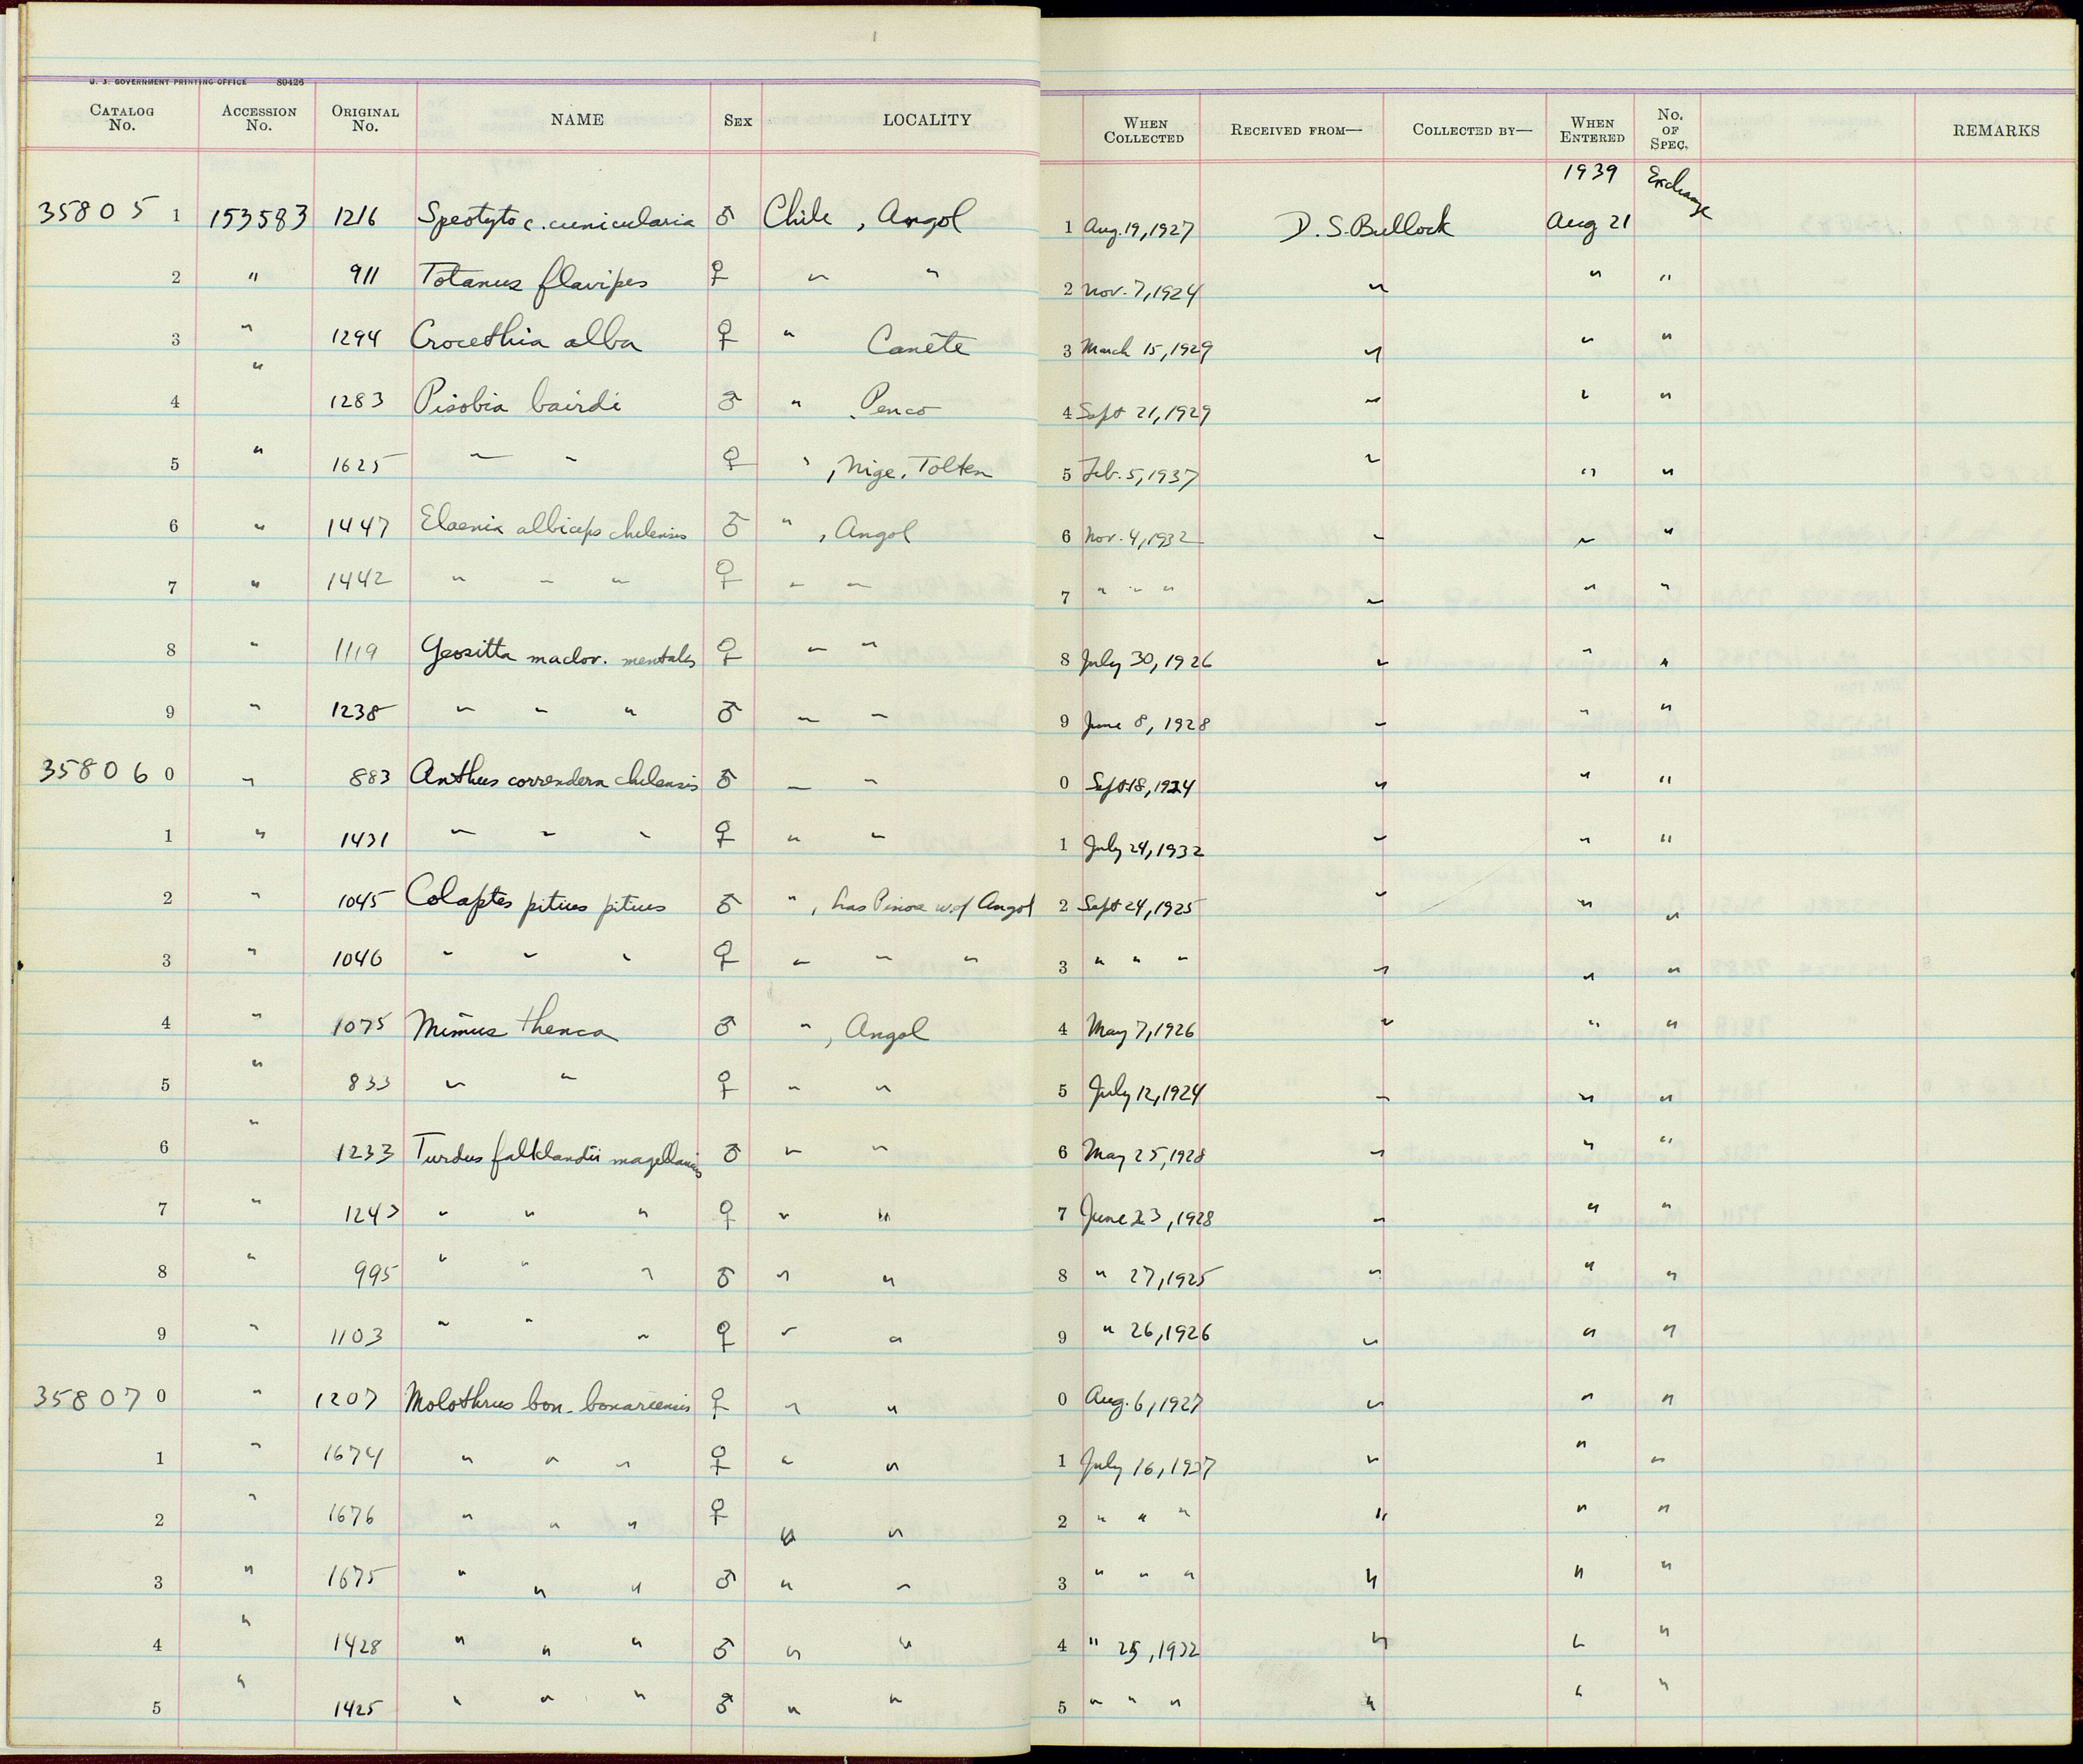 1
U. S. GOVERNMENT PRINTING OFFICE 80426
CATALOG No. ACCESSION No. ORIGINAL No. NAME SEX LOCALITY WHEN COLLECTED RECEIVED FROM— COLLECTED BY— WHEN ENTERED No. OF SPEC. REMARKS
1939 Exchange
35805 1 153583 1216 Speotyto c. cunicularia ♂ Chile, Angol 1 Aug. 19, 1927 D. S. Bullock Aug 21
2 " 911 Totanus flavipes ♀ " " 2 Nov. 7, 1924 " " "
3 " 1294 Crocethia alba ♀ " Canete 3 March 15, 1929 " " "
4 " 1283 Pisobia bairdi ♂ " Penco 4 Sept 21, 1929 " " "
5 " 1625 " " ♀ ", Nige. Tolten 5 Feb. 5, 1937 " " "
6 " 1447 Elaenia albiceps chilensis ♂ ", Angol 6 Nov. 4, 1932 " " "
7 " 1442 " " " ♀ " " 7 " " " " " "
8 " 1119 Geositta maclov. mentalis ♀ " " 8 July 30, 1926 " " "
9 " 1238 " " " ♂ " " 9 June 8, 1928 " " "
35806 0 " 883 Anthus correndera chilensis ♂ " " 0 Sept 18, 1924 " " "
1 " 1431 " " " ♀ " " 1 July 24, 1932 " " "
2 " 1045 Colaptes pitius pitius ♂ ", Los Pinos w of Angol 2 Sept 24, 1925 " " "
3 " 1046 " " " ♀ " " " 3 " " " " " "
4 " 1075 Mimus thenca ♂ ", Angol 4 May 7, 1926 " " "
5 " 833 " " ♀ " " 5 July 12, 1924 " " "
6 " 1233 Turdus falklandii magellanicus ♂ " " 6 May 25, 1928 " " "
7 " 1243 " " " ♀ " " 7 June 23, 1928 " " "
8 " 995 " " " ♂ " " 8 " 27, 1925 " " "
9 " 1103 " " " ♀ " " 9 " 26, 1926 " " "
35807 0 " 1207 Molothrus bon. bonariensis ♀ " " 0 Aug. 6, 1927 " " "
1 " 1674 " " " ♀ " " 1 July 16, 1937 " " "
2 " 1676 " " " ♀ " " 2 " " " " " "
3 " 1675 " " " ♂ " " 3 " " " " " "
4 " 1428 " " " ♂ " " 4 " 25, 1932 " " "
5 " 1425 " " " ♂ " " 5 " " " " " "